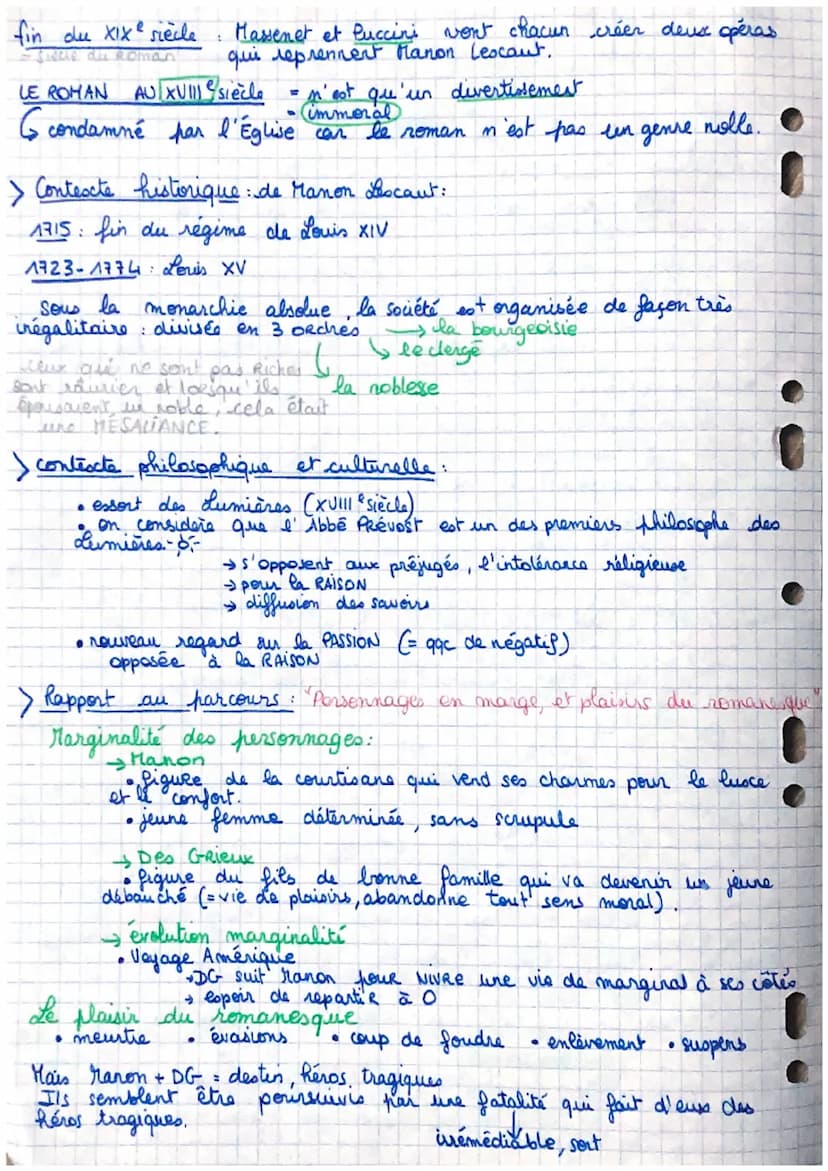 fin du XIXe siècle : Massenet et Puccini vont chacun créer deux opéras
= siècle du roman qui reprennent Manon Lescaut.
LE ROMAN AU XVIIIe siècle = n'est qu'un divertissement
= immoral
↳ condamné par l'Église car le roman n'est pas un genre noble.
> Contexte historique : de Manon Lescaut :
1715 : fin du régime de Louis XIV
1723-1774 : Louis XV
Sous la monarchie absolue, la société est organisée de façon très
inégalitaire : divisée en 3 ordres → la bourgeoisie
↘ le clergé
↓ la noblesse
ceux qui ne sont pas Riches
sont roturier et lorsqu'ils
épousaient un noble, cela était
une MÉSALIANCE.
> contexte philosophique et culturelle :
• essort des Lumières (XVIIIe siècle)
• on considère que l'Abbé Prévost est un des premiers philosophe des
Lumières.
→ s'opposent aux préjugés, l'intolérance réligieuse
→ pour la RAISON
→ diffusion des savoirs
• nouveau regard sur la PASSION (= qqc de négatif)
opposée à la RAISON
> Rapport au parcours : "Personnages en marge, et plaisirs du romanesque"
Marginalité des personnages :
→ Manon
• figure de la courtisane qui vend ses charmes pour le luxe
et le confort.
• jeune femme déterminée, sans scrupule
→ Des Grieux
• figure du fils de bonne famille qui va devenir un jeune
débauché (= vie de plaisirs, abandonne tout sens moral).
→ évolution marginalité
• Voyage Amérique
→ DG suit Manon pour VIVRE une vie de marginal à ses côtés
→ espoir de repartir à 0
Le plaisir du romanesque
• meurtre • évasions • coup de foudre • enlèvement • suspens
Mais Manon + DG = destin, héros tragiques
Ils semblent être poursuivis par une fatalité qui fait d'eux des
héros tragiques.
irrémédiable, sort